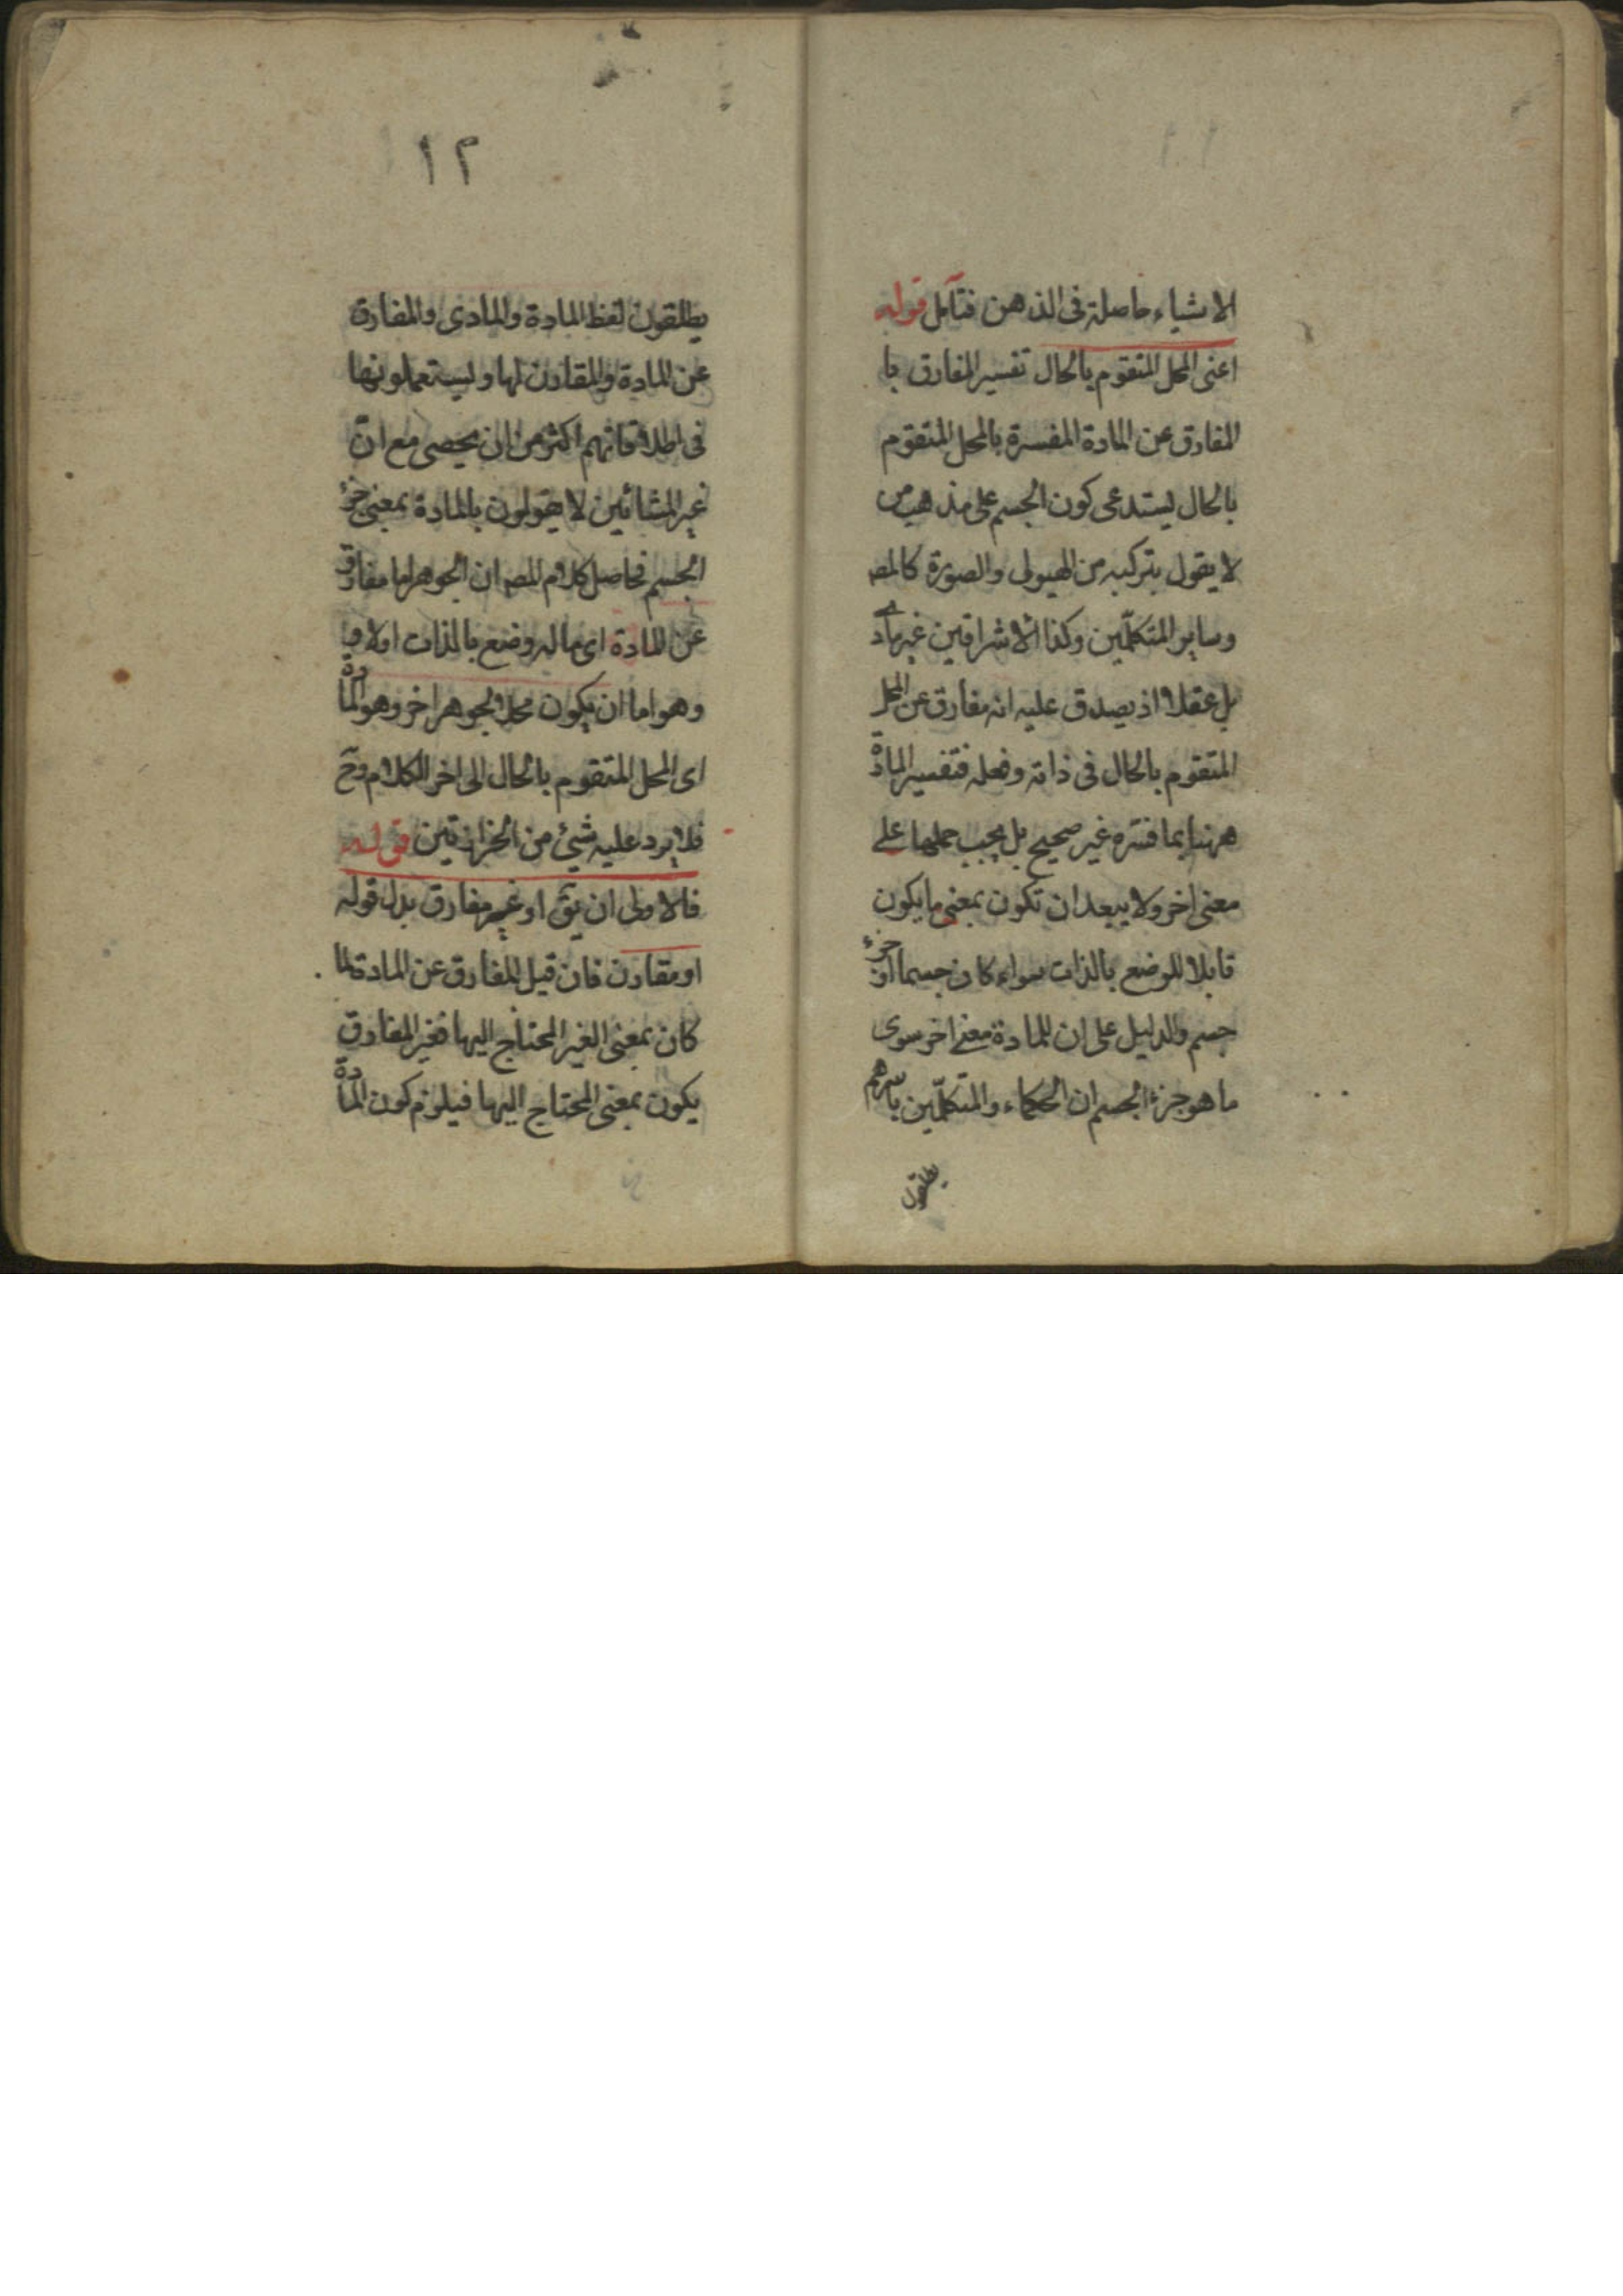 الاشياء حاصلة فى الذهن فتأمل قوله
اعنى المحل المتقوم بالحال تفسير المفارق با
المفارق عن المادة المفسرة بالمحل المتقوم
بالحال يستدعى كون الجسم على مذهب من
لا يقول بتركبه من الهيولى والصورة كالمص
وساير المتكلّمين وكذا الاشراقيين غير مادى
بل عقلا اذ يصدق عليه انه مفارق عن المحل
المتقوم بالحال فى ذاته وفعله فتفسير المادة
ههنا بما فسّره غير صحيح بل يجب حملها على
معنى اخر ولا يبعد ان تكون بمعنى ما يكون
قابلا للوضع بالذات سواء كان جسما او جزء
جسم والدليل على ان للمادة معنى اخر سوى
ما هو جزء الجسم ان الحكماء والمتكلّمين باسرهم
يطلقون
١٢
يطلقون لفظ المادة والمادى والمفارق
عن المادة والمقارن لها ويستعملونها
فى اطلاقاتهم اكثر من ان يحصى مع انّ
غير المشائين لا يقولون بالمادة بمعنى جزء
الجسم فحاصل كلام المص ان الجوهر اما مفارق
عن المادة اى ما له وضع بالذات اولا
وهو اما ان يكون محلا لجوهر اخر وهو المادة
اى المحل المتقوم بالحال الى اخر الكلام وح
فلا يرد عليه شيئ من الحزازتين قوله
فالاولى ان يق او غير مفارق بدل قوله
او مقارن فان قيل المفارق عن المادة لما
كان بمعنى الغير المحتاج اليها فغير المفارق
يكون بمعنى المحتاج اليها فيلزم كون المادة